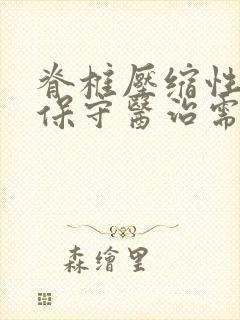 脊椎壓缩性
保守醫治需
森繪里